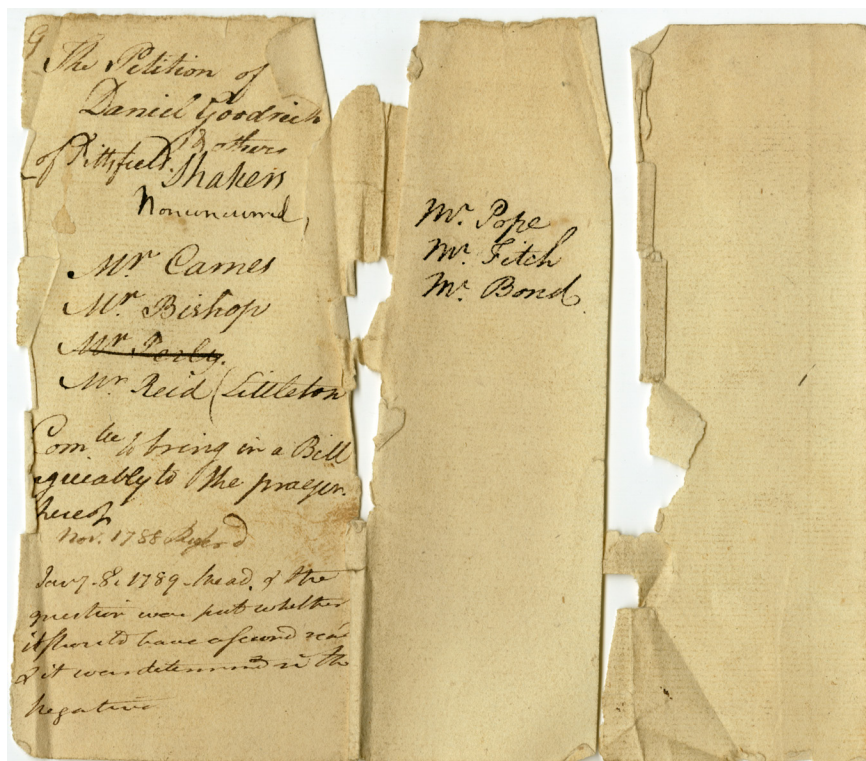 9
The Petition of
Daniel Goodrich
& others
of Pittsfield.
Shakers
Nonconcurred,
Mr Carnes
Mr. Bishop
Mr Perly.
Mr Reid (Littleton
Comtee to bring in a Bill
agreeably to the prayer
hereof
Nov. 1788
Jany. 8. 1789 - head. & the
question was put whether
it should have a second rea
& it was determined in the
negative
Mr. Pope
Mr. Fitch
Mr. Bond.